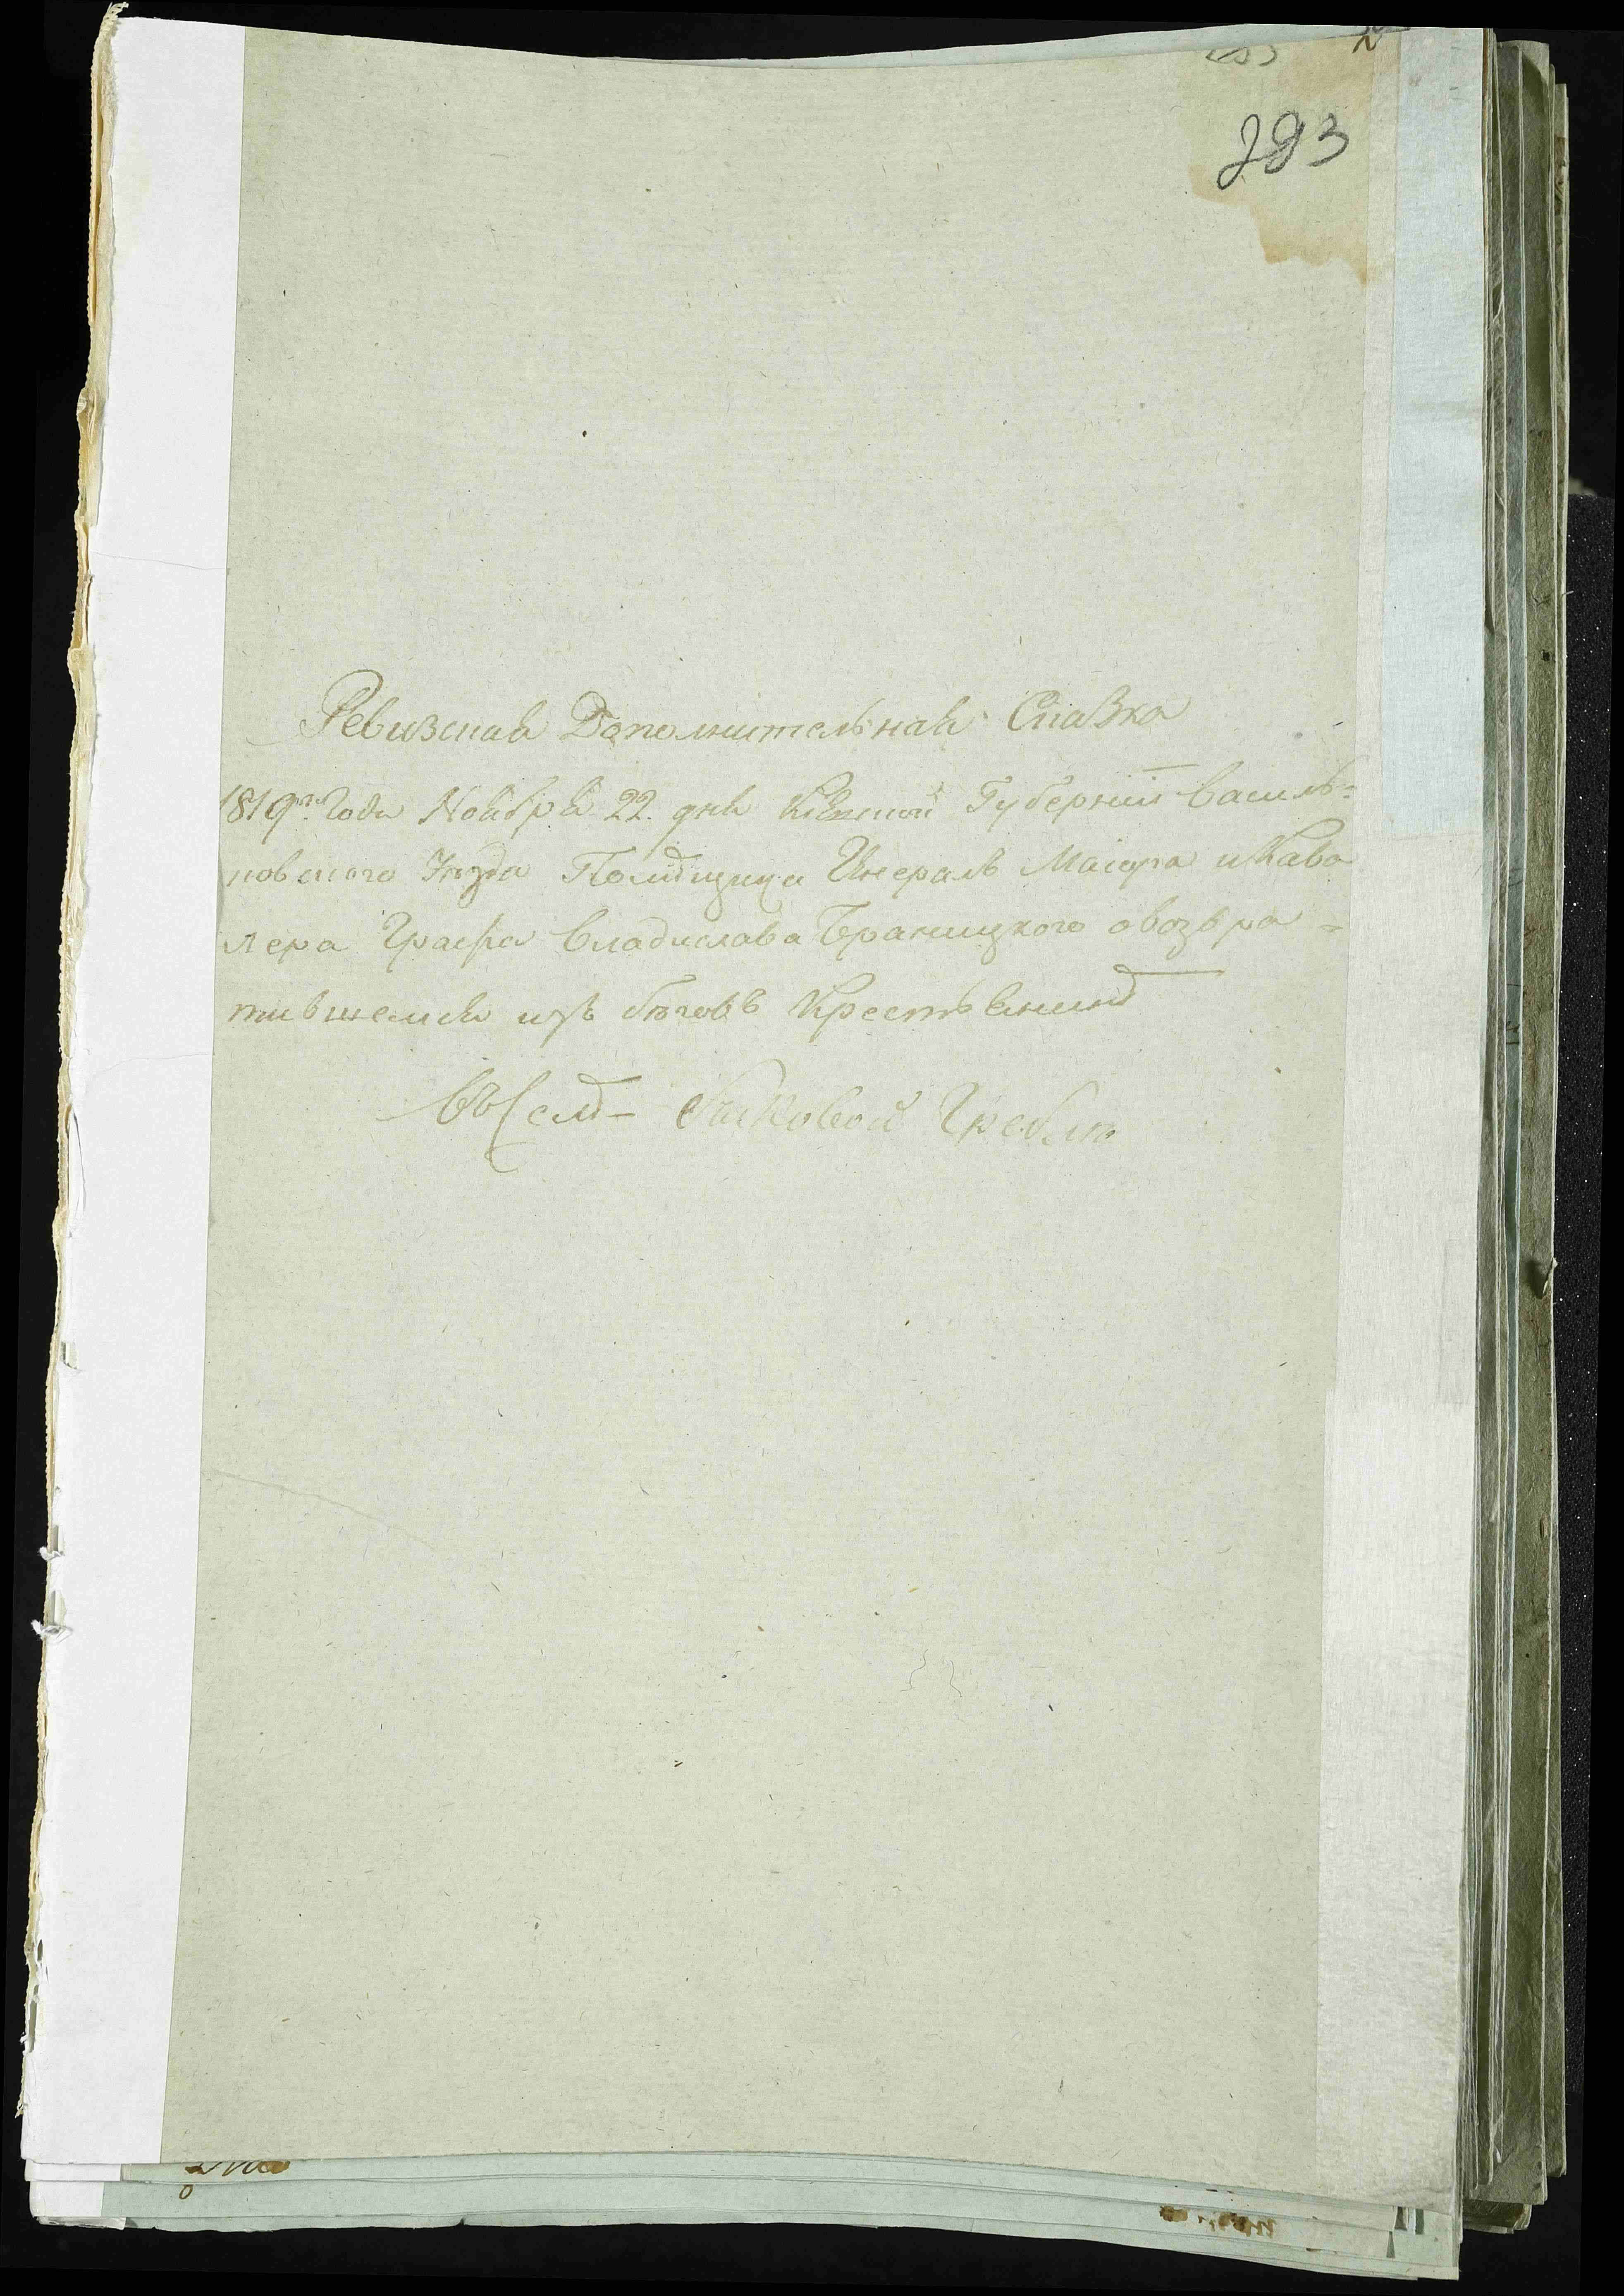 293
Ревизская Дополнительная Сказка
1819го Года Ноября 22 дня Киевской Губернии Василь=
ковского Уезда Помещика Генераль Маиора и Кава
лера Графа Владислава Браницкого о возвра=
тившемся изъ бѣговъ Крестьянинѣ
Въ Селѣ Быковой Греблѣ